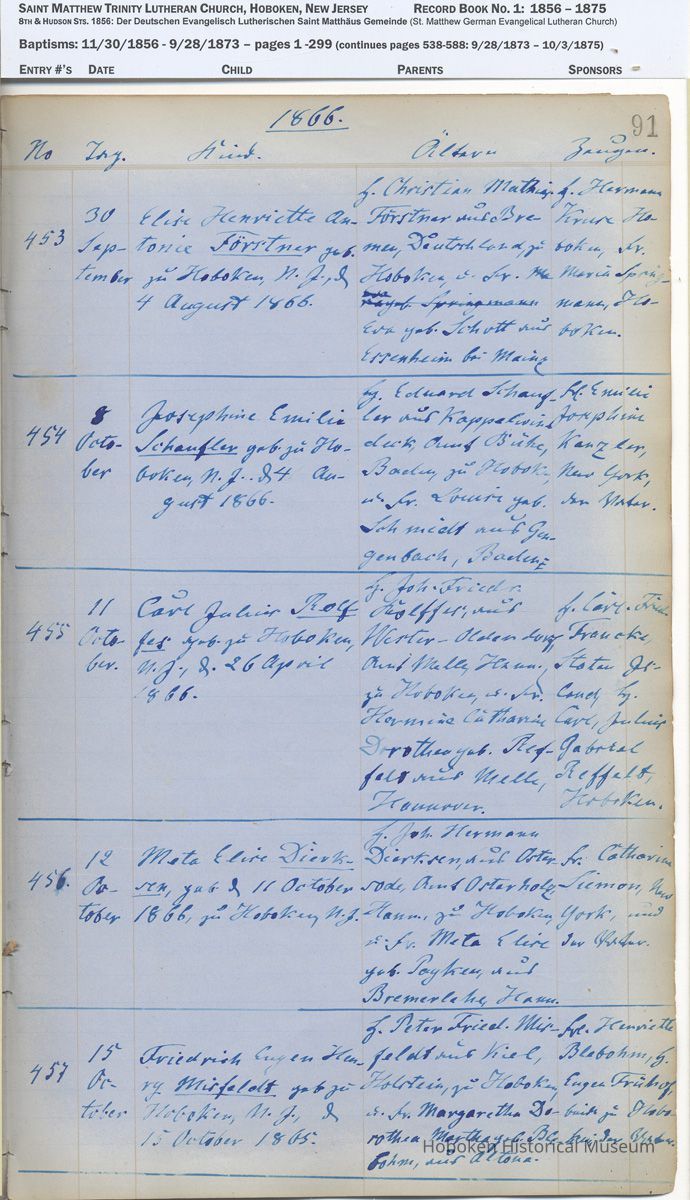 SAINT MATTHEW TRINITY LUTHERAN CHURCH, HOBOKEN, NEW JERSEY RECORD BOOK NO. 1: 1856 – 1875
8TH & HUDSON STS. 1856: Der Deutschen Evangelisch Lutherischen Saint Matthäus Gemeinde (St. Matthew German Evangelical Lutheran Church)
Baptisms: 11/30/1856 - 9/28/1873 – pages 1 -299 (continues pages 538-588: 9/28/1873 – 10/3/1875)
ENTRY #'S DATE CHILD PARENTS SPONSORS
1866.
91
No Tag. Kind. Ältern Zeugen.
453
30
Sep-
tember
Elise Henriette An-
tonie Förstner geb.
zu Hoboken, N. J., d.
4 August 1866.
H. Christian Mathias
Förstner aus Bre-
men, Deutschland, zu
Hoboken, u. Fr.
Eva geb. Schott aus
Essenheim bei Mainz
H. Hermann
Kruse Ho-
boken, Fr.
Maria Spring-
mann, Ho-
boken.
454
8
Octo-
ber
Josephine Emilie
Schaufler geb. zu Ho-
boken, N. J., d. 4 Au-
gust 1866.
H. Eduard Schauf-
ler aus Kappelwin-
deck, Amt Bühl,
Baden, zu Hobok.
u. Fr. Louise geb.
Schmidt aus Gen-
genbach, Baden.
Frl. Emilie
Josephine
Kanzler,
New York,
der Vater.
455
11
Octo-
ber.
Carl Julius Rolf-
fes geb. zu Hoboken,
N. J., d. 26 April
1866.
H. Joh. Friedr.
Rolffes, aus
Wester-Oldendorf,
Amt Melle, Hann.,
zu Hoboken, u. Fr.
Hermine Catharine
Dorothea geb. Ref-
felt aus Melle,
Hannover.
H. Carl Fried.
Francke,
Staten Is-
land, H.
Carl, Julius
Gabriel
Reffelt,
Hoboken.
456
12
Oc-
tober
Meta Elise Dierk-
sen, geb. d. 11 October
1866, zu Hoboken, N. J.
H. Joh. Hermann
Dierksen, aus Oster-
sode, Amt Osterholz,
Hann., zu Hoboken,
u. Fr. Meta Elise
geb. Poyken, aus
Bremerlehe, Hann.
Fr. Catharine
Siemon, New
York, und
der Vater.
457
15
Oc-
tober
Friedrich Eugen Hen-
ry Misfeldt geb. zu
Hoboken, N. J., d.
15 October 1865.
H. Peter Fried. Mis-
feldt aus Kiel,
Holstein, zu Hoboken,
u. Fr. Margaretha Do-
rothea Martha geb. Ble-
bohm, aus Altona.
Frl. Henriette
Blebohm, H.
Eugen
Hoboken Historical Museum